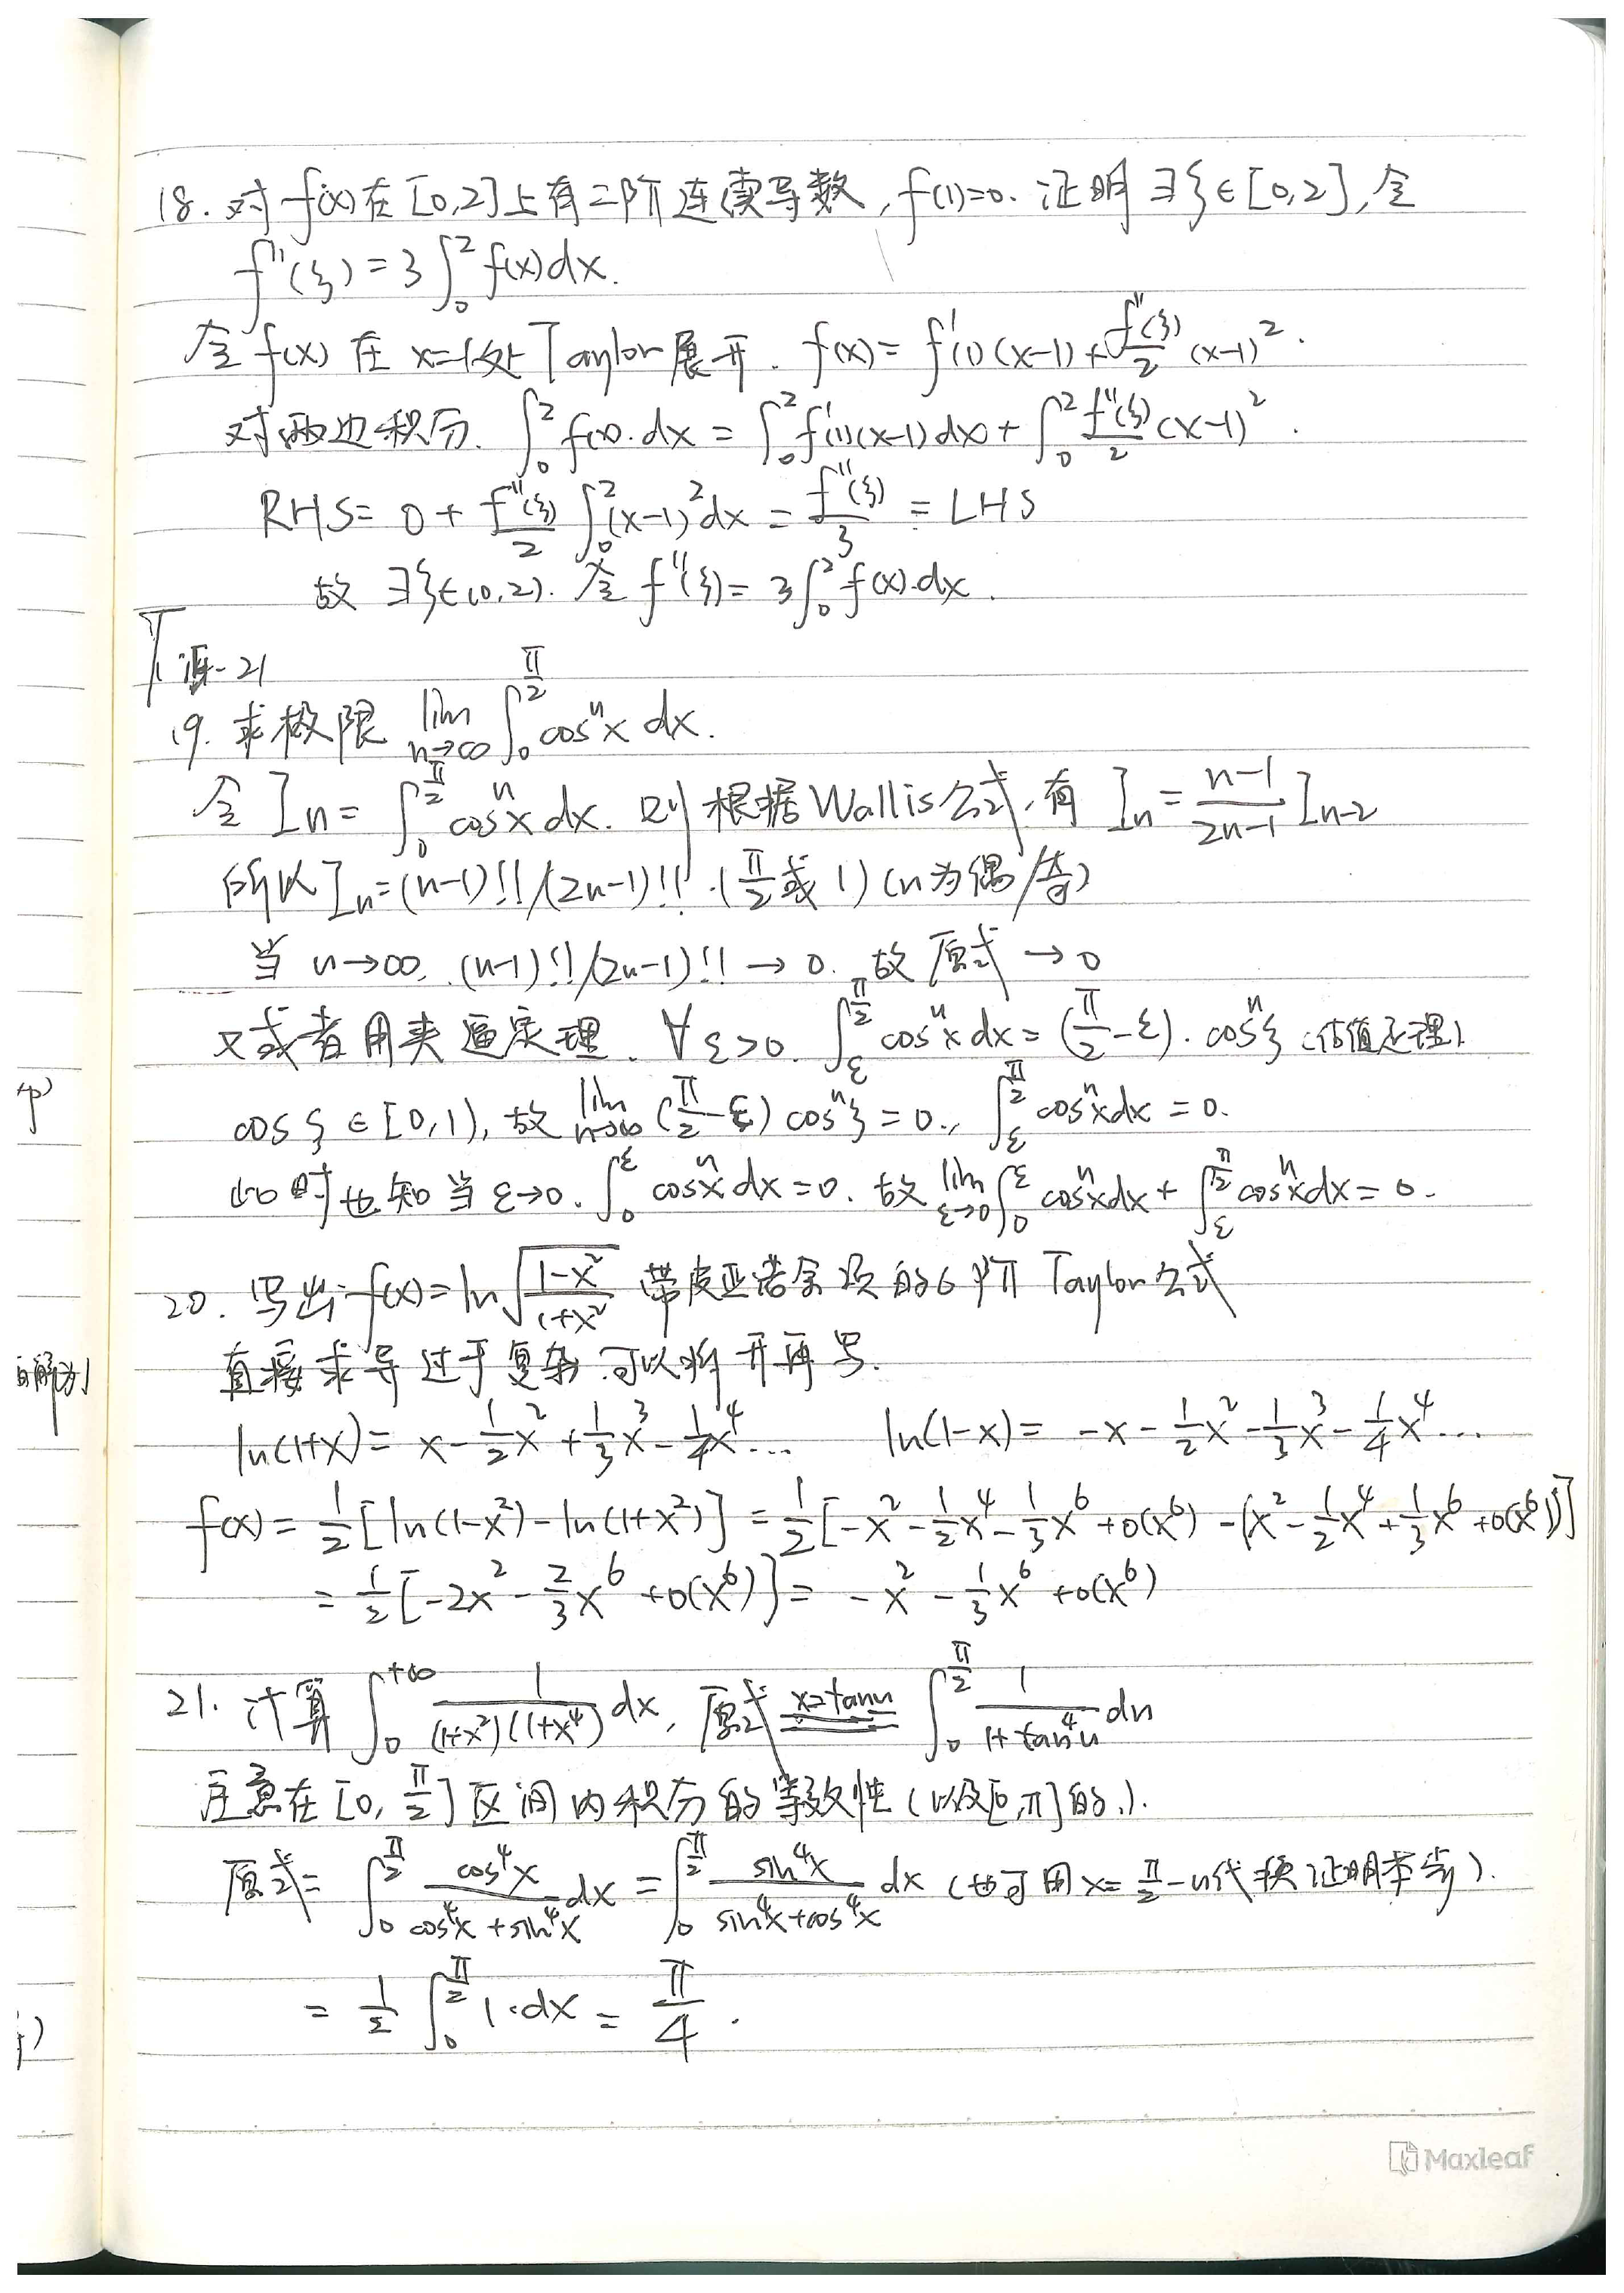 18. 对f(x)在[0,2]上有二阶连续导数, f(1)=0. 证明∃ξ∈[0,2],令
f''(ξ)=3∫₀² f(x)dx.
令f(x)在x=1处Taylor展开. f(x)=f'(1)(x-1)+f''(ξ)/2 (x-1)².
对两边积分. ∫₀² f(x)·dx=∫₀² f'(1)(x-1)dx+∫₀² f''(ξ)/2 (x-1)².
RHS=0+f''(ξ)/2 ∫₀² (x-1)²dx=f''(ξ)/3=LHS
故∃ξ∈(0,2). 令f''(ξ)=3∫₀² f(x)·dx.
-21
19. 求极限 lim n→∞ ∫₀^(π/2) cosⁿx dx.
令Iₙ=∫₀^(π/2) cosⁿx dx. 则根据Wallis公式,有 Iₙ=(n-1)/(2n-1) Iₙ₋₂
所以Iₙ=(n-1)!!/(2n-1)!!·(π/2或1)(n为偶/奇)
当n→∞, (n-1)!!/(2n-1)!!→0. 故原式→0
又或者用夹逼定理. ∀ε>0. ∫_ε^(π/2) cosⁿx dx=(π/2-ε)·cosⁿξ (估值定理)
cosξ∈[0,1), 故 lim n→∞ (π/2-ε)cosⁿξ=0., ∫_ε^(π/2) cosⁿxdx=0.
此时也知当ε→0. ∫₀^ε cosⁿx dx=0. 故 lim ε→0 ∫₀^ε cosⁿxdx+∫_ε^(π/2) cosⁿxdx=0.
20. 写出f(x)=ln√((1-x²)/(1+x²)) 带皮亚诺余项的6阶Taylor公式
直接求导过于复杂.可以拆开再写.
ln(1+x)=x-1/2x²+1/3x³-1/4x⁴... ln(1-x)=-x-1/2x²-1/3x³-1/4x⁴...
f(x)=1/2[ln(1-x²)-ln(1+x²)]=1/2[-x²-1/2x⁴-1/3x⁶+o(x⁶)-(x²-1/2x⁴+1/3x⁶+o(x⁶))]
=1/2[-2x²-2/3x⁶+o(x⁶)]=-x²-1/3x⁶+o(x⁶)
21. 计算∫₀^(+∞) 1/((1+x²)(1+x⁴)) dx, 原式 x=tanu ∫₀^(π/2) 1/(1+tan⁴u) du
注意在[0,π/2]区间内积分的等效性(以及[0,π]的.).
原式=∫₀^(π/2) cos⁴x/(cos⁴x+sin⁴x) dx=∫₀^(π/2) sin⁴x/(sin⁴x+cos⁴x) dx (也可用x=π/2-u代换证明本步).
=1/2 ∫₀^(π/2) 1·dx=π/4.
Maxleaf